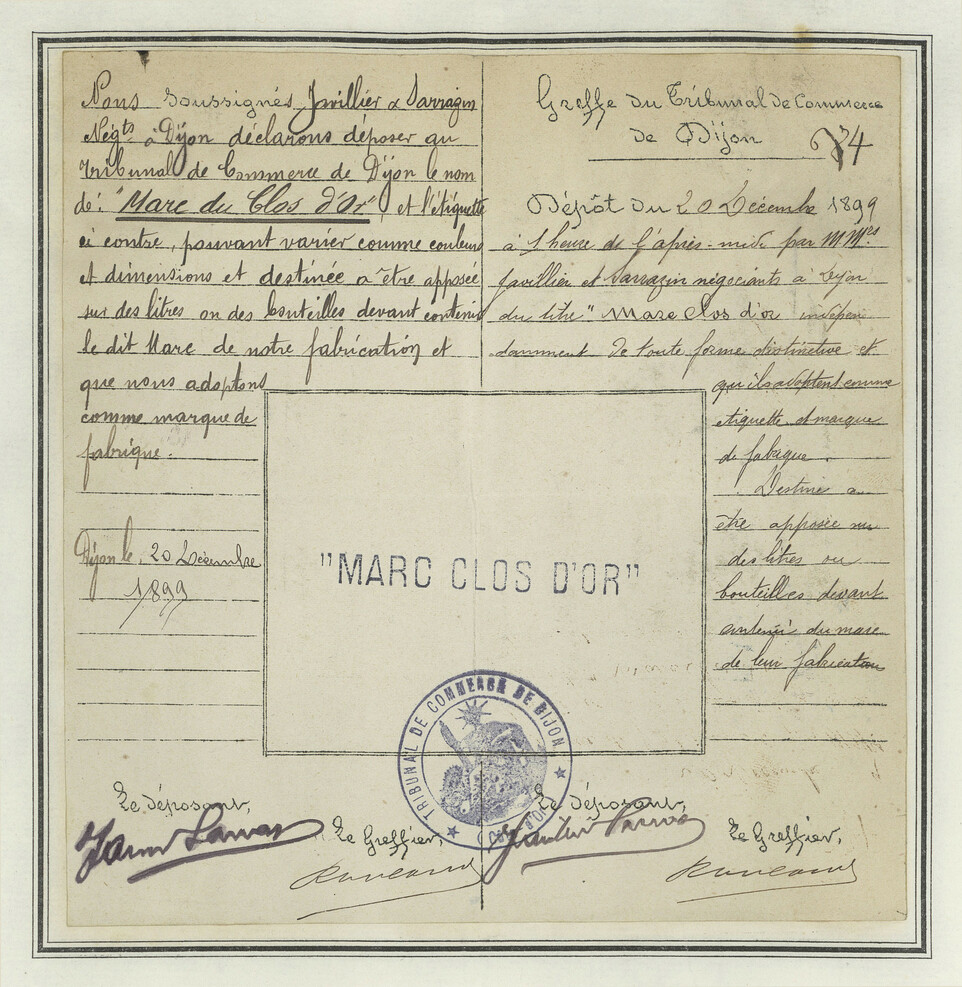 Nous soussignés Javillier & Sarrazin
Négts à Dijon déclarons déposer au
Tribunal de Commerce de Dijon le nom
de: "Marc du Clos d'Or" et l'étiquette
ci contre, pouvant varier comme couleurs
et dimensions et destinée a être apposée
sur des litres ou des bouteilles devant contenir
le dit Marc de notre fabrication et
que nous adoptons
comme marque de
fabrique.
Dijon le, 20 Décembre
1899
Greffe du Tribunal de Commerce
de Dijon 674
Dépôt du 20 Décembre 1899
à 1 heure de l'après-midi par MMrs
Javillier et Sarrazin négociants à Dijon
du titre "Marc Clos d'or indépen
damment de toute forme distinctive et
qu'ils adoptent comme
etiquette et marque
de fabrique.
Destiné a
être apposée sur
des litres ou
bouteilles devant
contenir du marc
de leur fabrication
"MARC CLOS D'OR"
TRIBUNAL DE COMMERCE DE DIJON
Le déposant,
Le Greffier,
Le déposant,
Le Greffier,